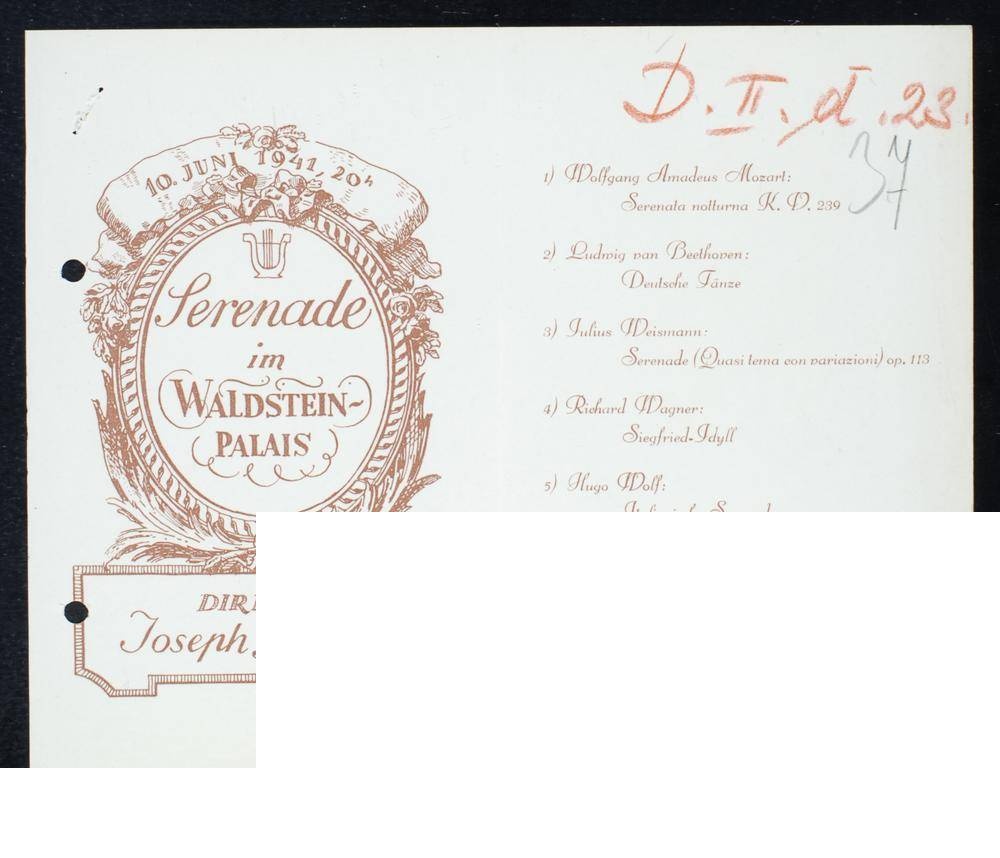 10. JUNI 1941, 20h
Serenade
im
WALDSTEIN-
PALAIS
Joseph
D. II. d. 23.
37
1) Wolfgang Amadeus Mozart:
Serenata notturna K. V. 239
2) Ludwig van Beethoven:
Deutsche Tänze
3) Julius Weismann:
Serenade (Quasi tema con variazioni) op. 113
4) Richard Wagner:
Siegfried-Idyll
5) Hugo Wolf: